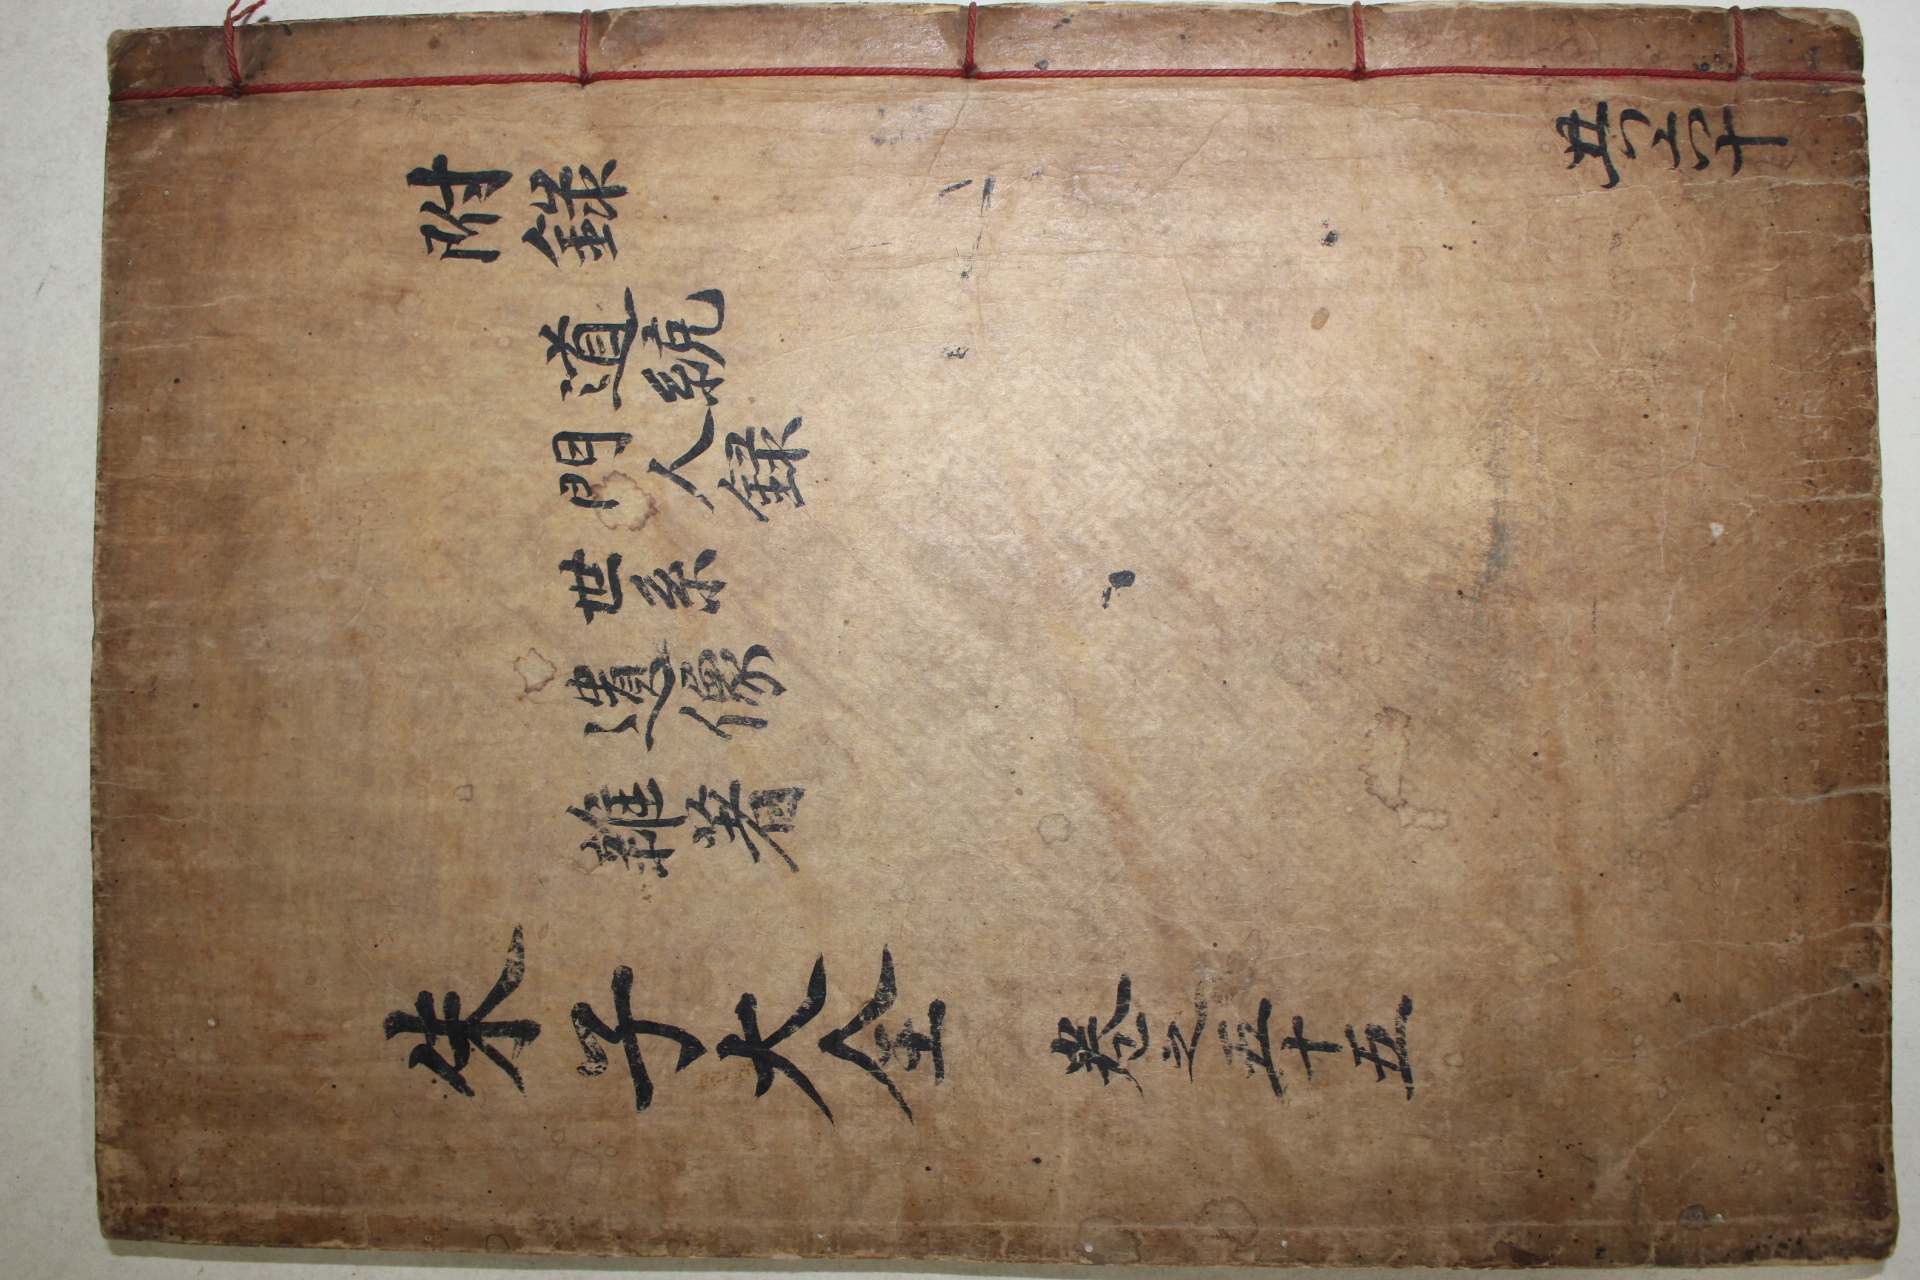 附錄
道統
門人錄
世系
遺像
雜著
朱子大全 卷之五十五